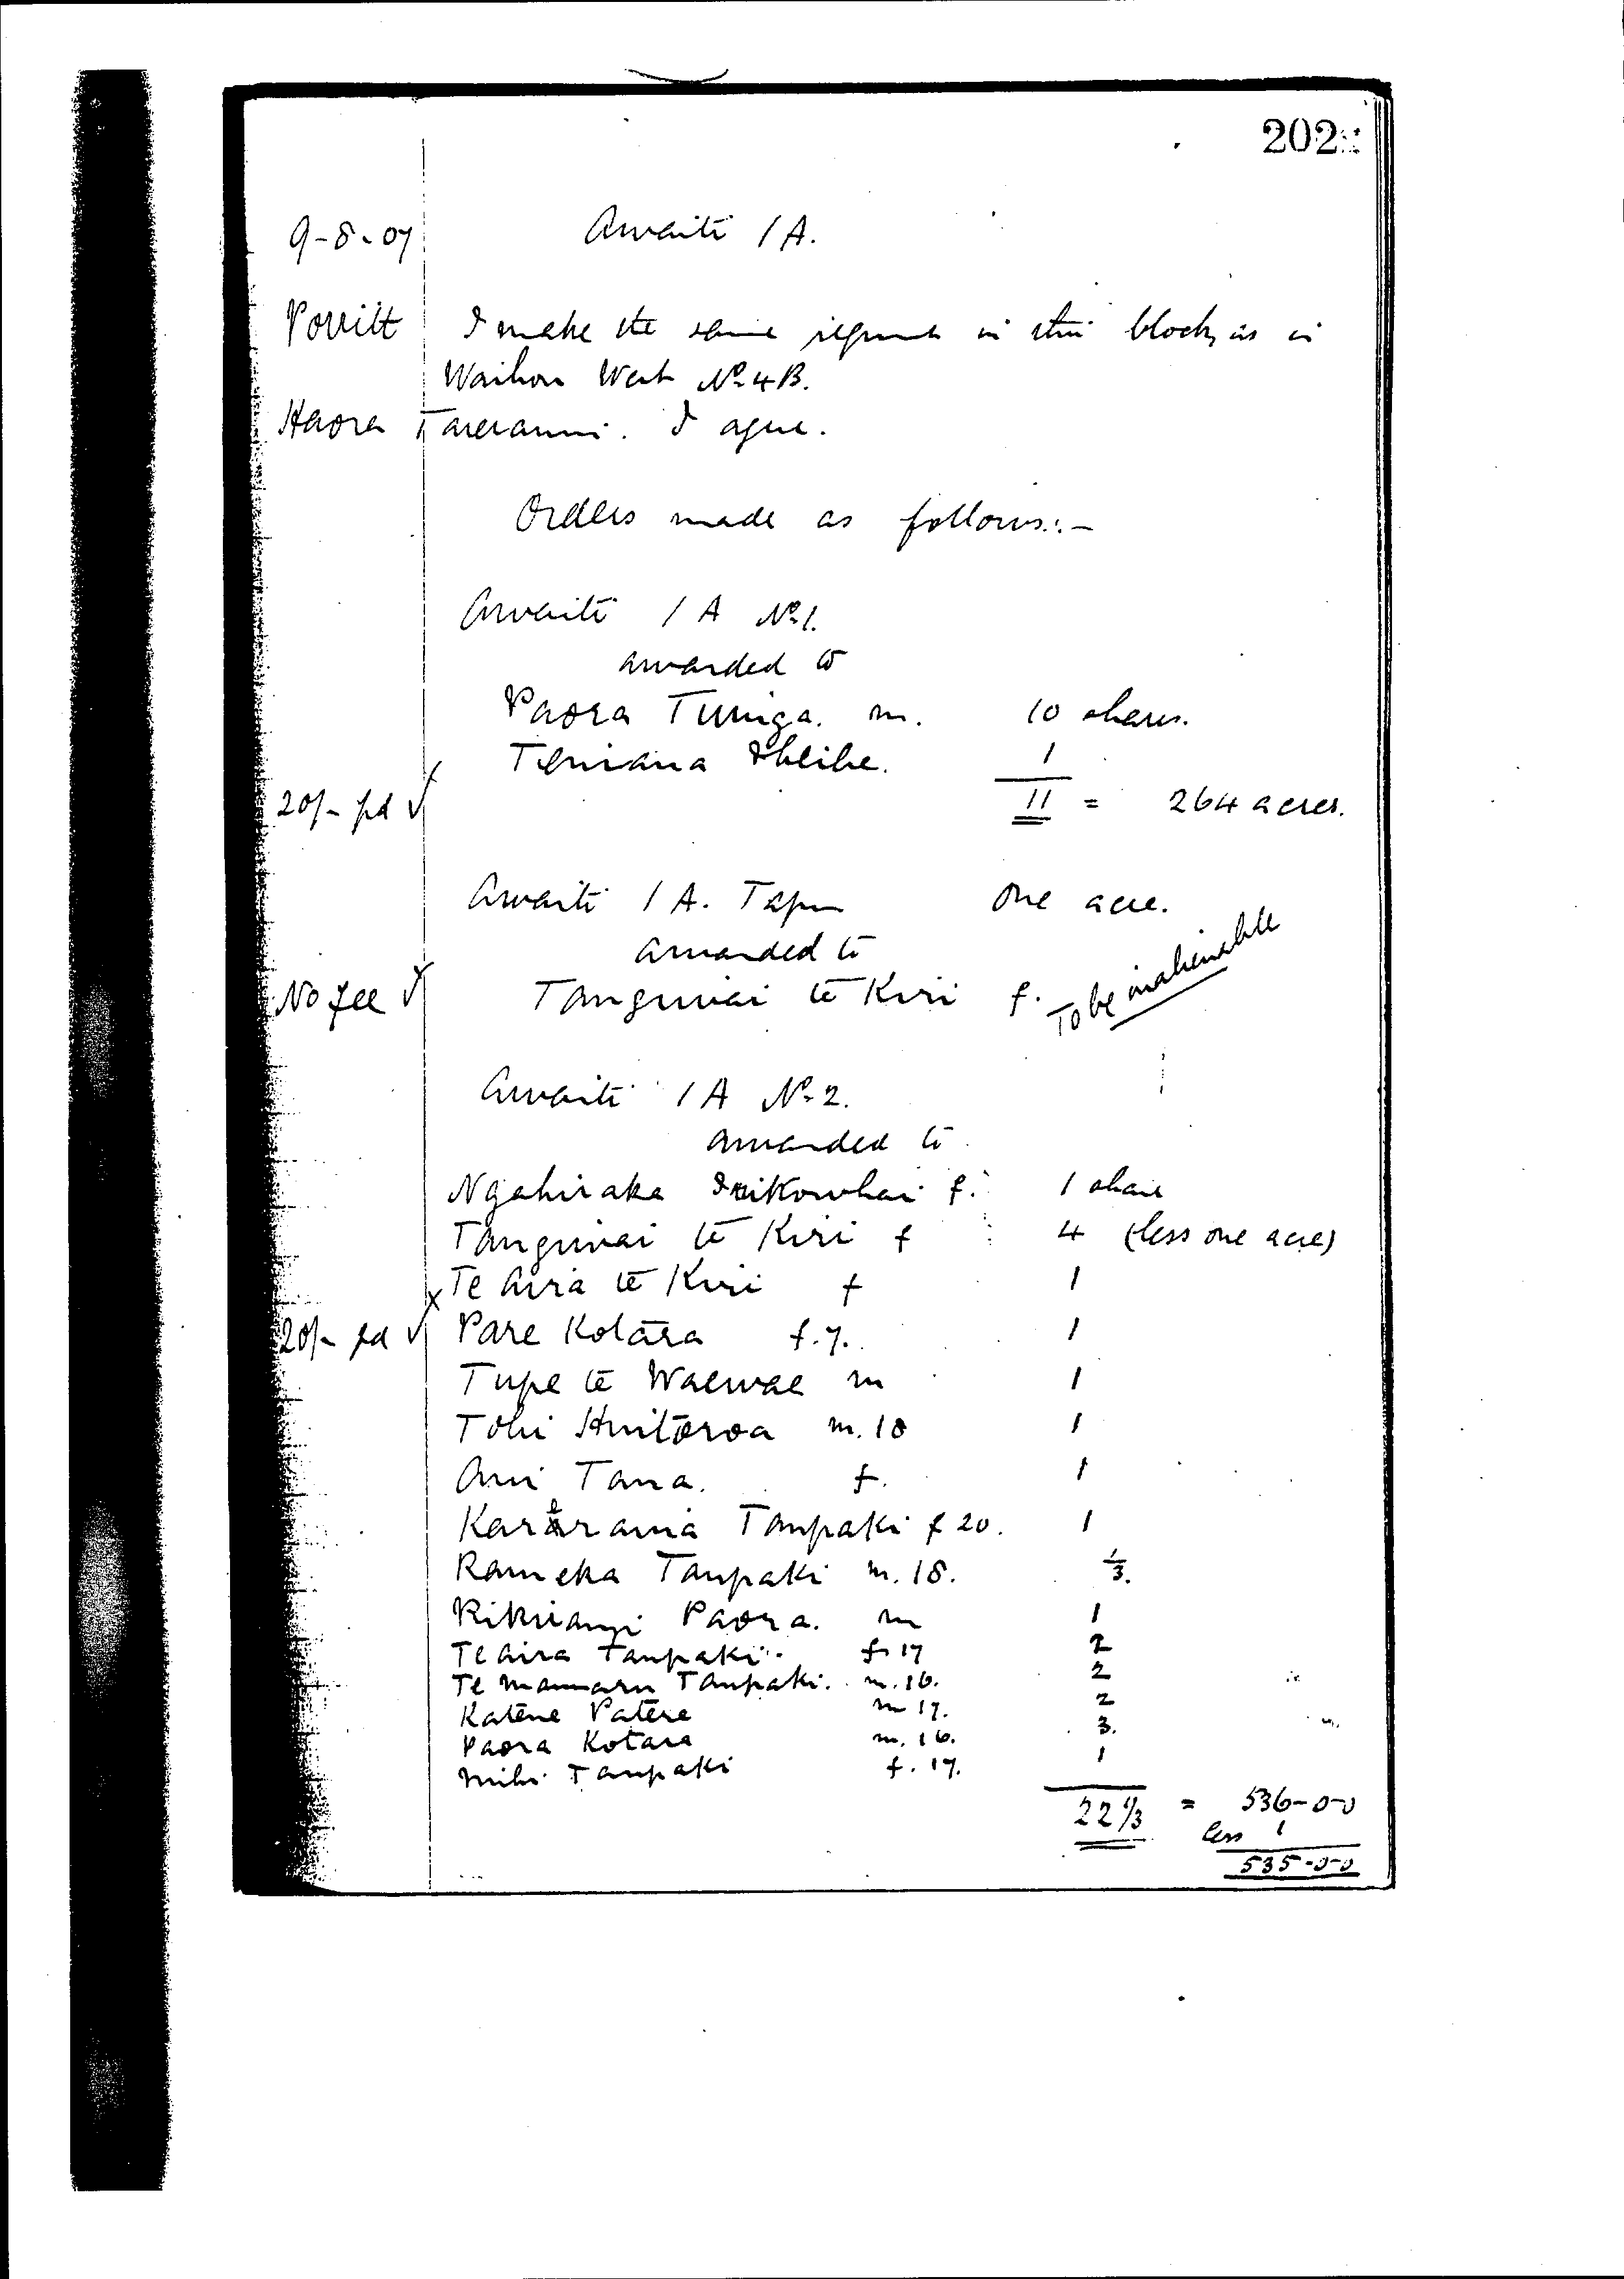 202
9-8-07 Awaiti 1A.
Porritt I make the same request in this block, as in
Waihou West No 4B.
Haora Tareranui. I agree.
Orders made as follows:-
Awaiti 1A No 1.
awarded to
Paora Tuinga. m. 10 shares.
Teniana 1
20/- pd ✓ 11 = 264 acres.
Awaiti 1A. Tapu one acre.
awarded to
No fee ✓ Tanguwai te Kiri f. To be inalienable
Awaiti 1A No 2.
awarded to
Ngahiraka Irikowhai f. 1 share
Tanguwai te Kiri f 4 (less one acre)
x Te Aira te Kiri f 1
20/- pd ✓ Pare Kotara f.7. 1
Tupe te Waewae m 1
Tohi Huitoroa m.18 1
Ani Tana. f. 1
Kararaina Taupaki f 20. 1
Rameka Taupaki m.18. 1/3.
Rikiriangi Paora. m 1
Te Aira Taupaki. f. 17 2
Te Maunaru Taupaki. m.16. 2
Katene Patere m 17. 2
Paora Kotara m.16. 3.
Mihi Taupaki f. 17. 1
22 1/3 = 536-0-0
less 1
535-0-0